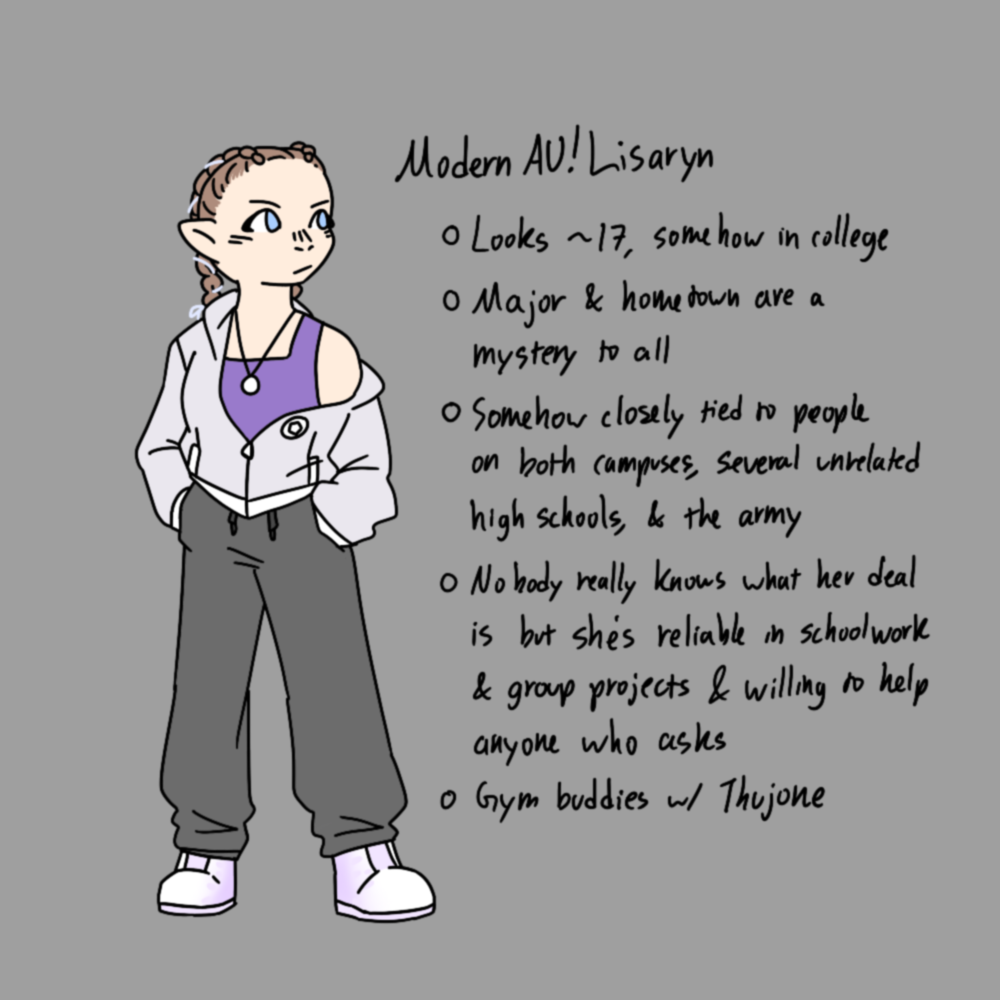 Modern AU! Lisaryn
o Looks ~17, somehow in college
o Major & hometown are a
mystery to all
o Somehow closely tied to people
on both campuses, several unrelated
high schools, & the army
o Nobody really knows what her deal
is but she's reliable in schoolwork
& group projects & willing to help
anyone who asks
o Gym buddies w/ Thujone